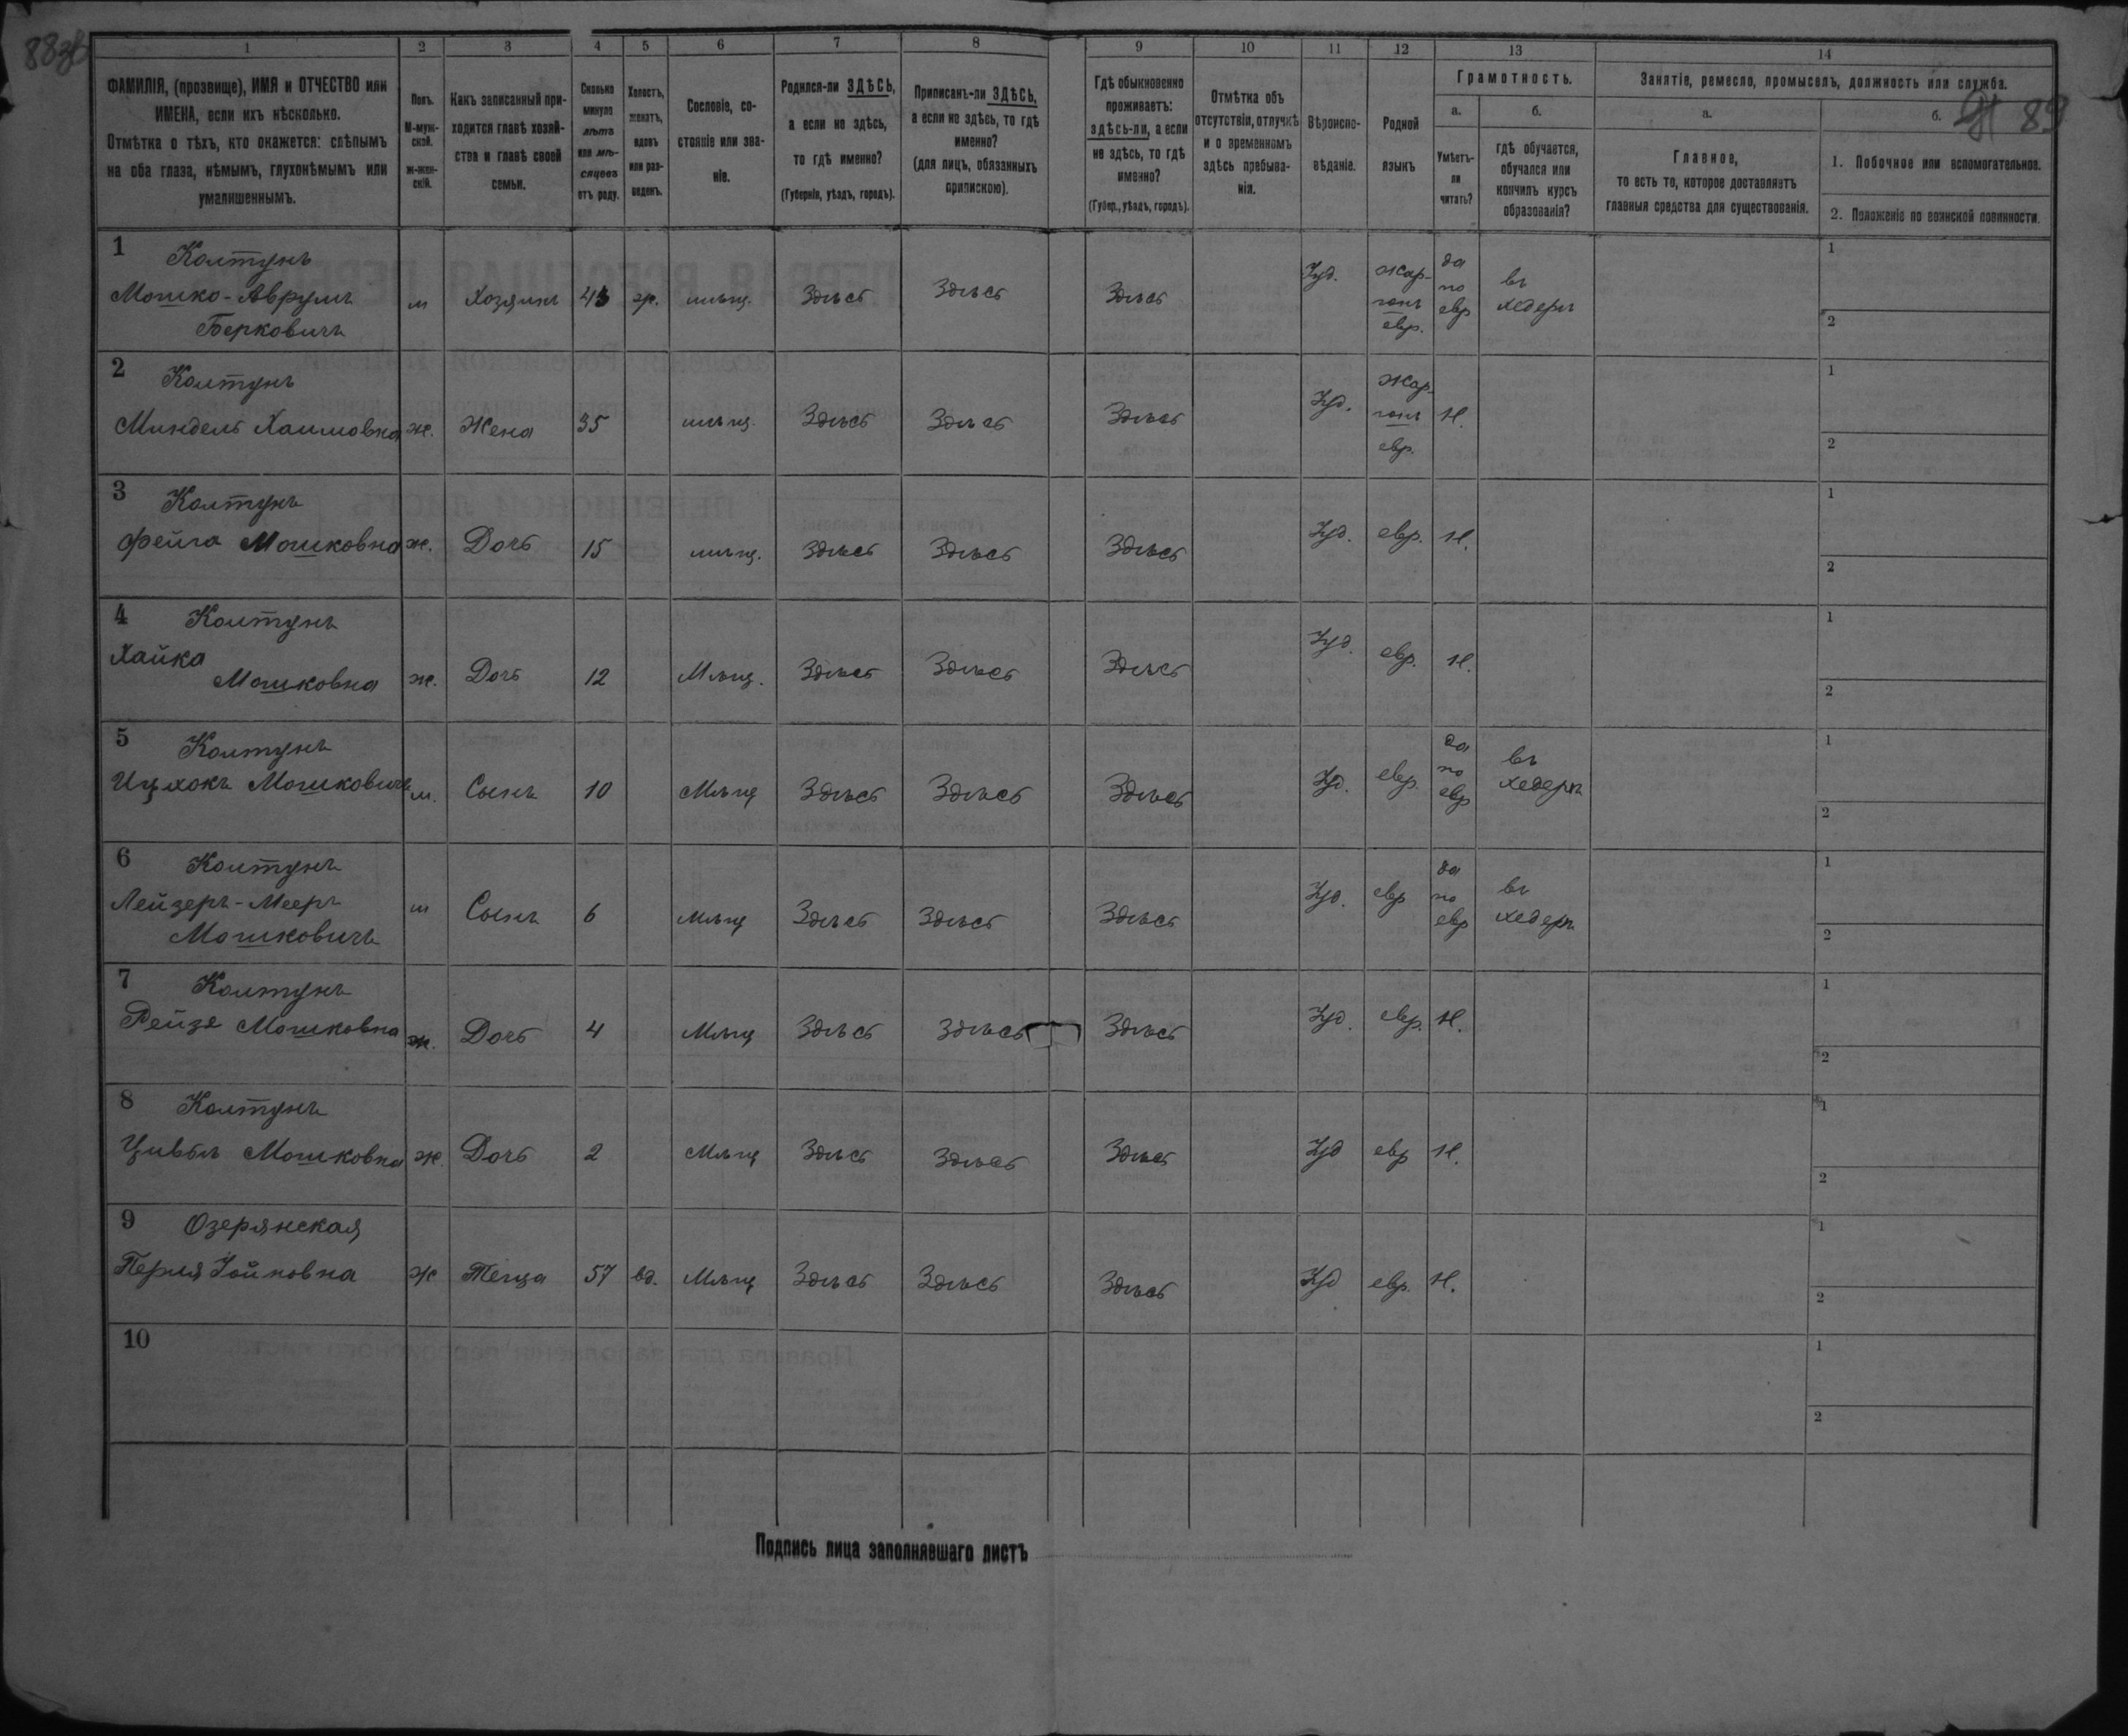 88об
1 2 3 4 5 6 7 8 9 10 11 12 13 14
ФАМИЛІЯ, (прозвище), ИМЯ и ОТЧЕСТВО или
ИМЕНА, если ихъ нѣсколько.
Отмѣтка о тѣхъ, кто окажется: слѣпымъ
на оба глаза, нѣмымъ, глухонѣмымъ или
умалишеннымъ.
Полъ.
М-муж-
ской.
ж-жен-
скій.
Какъ записанный при-
ходится главѣ хозяй-
ства и главѣ своей
семьи.
Сколько
минуло
лѣтъ
или мѣ-
сяцевъ
отъ роду.
Холостъ,
женатъ,
вдовъ
или раз-
веденъ.
Сословіе, со-
стояніе или зва-
ніе.
Родился-ли ЗДѢСЬ,
а если не здѣсь,
то гдѣ именно?
(Губернія, уѣздъ, городъ).
Приписанъ-ли ЗДѢСЬ,
а если не здѣсь, то гдѣ
именно?
(для лицъ, обязанныхъ
припискою).
Гдѣ обыкновенно
проживаетъ:
здѣсь-ли, а если
не здѣсь, то гдѣ
именно?
(Губер., уѣздъ, городъ).
Отмѣтка объ
отсутствіи, отлучкѣ
и о временномъ
здѣсь пребыва-
ніи.
Вѣроиспо-
вѣданіе.
Родной
языкъ
Грамотность.
а.
Умѣетъ-
ли
читать?
б.
гдѣ обучается,
обучался или
кончилъ курсъ
образованія?
Занятіе, ремесло, промыселъ, должность или служба.
89
а.
Главное,
то есть то, которое доставляетъ
главныя средства для существованія.
б.
1. Побочное или вспомогательное.
2. Положеніе по воинской повинности.
1 Колтунъ
Мошко-Аврумъ
Берковичъ
м Хозяинъ 43 ж. мѣщ. Здѣсь Здѣсь Здѣсь Іуд.
жар-
гонъ
евр.
да
по
евр
въ
хедерѣ
1
2
2 Колтунъ
Миндель Хаимовна ж. Жена 35 мѣщ. Здѣсь Здѣсь Здѣсь Іуд.
жар-
гонъ
евр.
Н.
1
2
3 Колтунъ
Фейга Мошковна ж. Дочь 15 мѣщ. Здѣсь Здѣсь Здѣсь Іуд. евр. Н.
1
2
4 Колтунъ
Хайка
Мошковна ж. Дочь 12 Мѣщ. Здѣсь Здѣсь Здѣсь Іуд. евр. Н.
1
2
5 Колтунъ
Ицхокъ Мошковичъ м. Сынъ 10 Мѣщ Здѣсь Здѣсь Здѣсь Іуд. евр.
да
по
евр
въ
хедерѣ
1
2
6 Колтунъ
Лейзеръ-Мееръ
Мошковичъ
м Сынъ 6 Мѣщ Здѣсь Здѣсь Здѣсь Іуд. евр
да
по
евр
въ
хедерѣ
1
2
7 Колтунъ
Рейзя Мошковна ж. Дочь 4 Мѣщ Здѣсь Здѣсь Здѣсь Іуд. евр. Н.
1
2
8 Колтунъ
Цивья Мошковна ж. Дочь 2 Мѣщ Здѣсь Здѣсь Здѣсь Іуд евр Н.
1
2
9 Озерянская
Перля ж Теща 57 вд. Мѣщ Здѣсь Здѣсь Здѣсь Іуд евр. Н.
1
2
10
1
2
Подпись лица заполнявшаго листъ